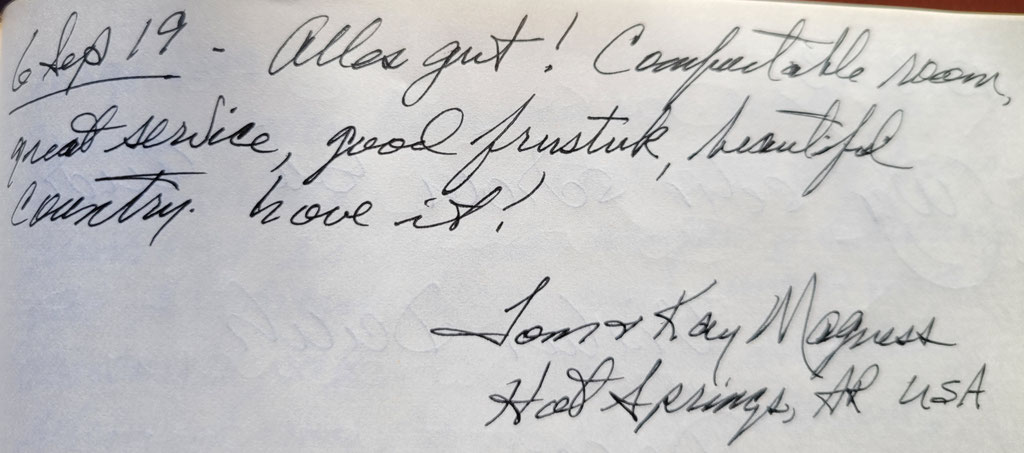 6 Sep 19 - Alles gut! Comfortable room,
great service, good frustuk, beautiful
country. Love it!
Tom & Kay Magness
Hot Springs, AR USA